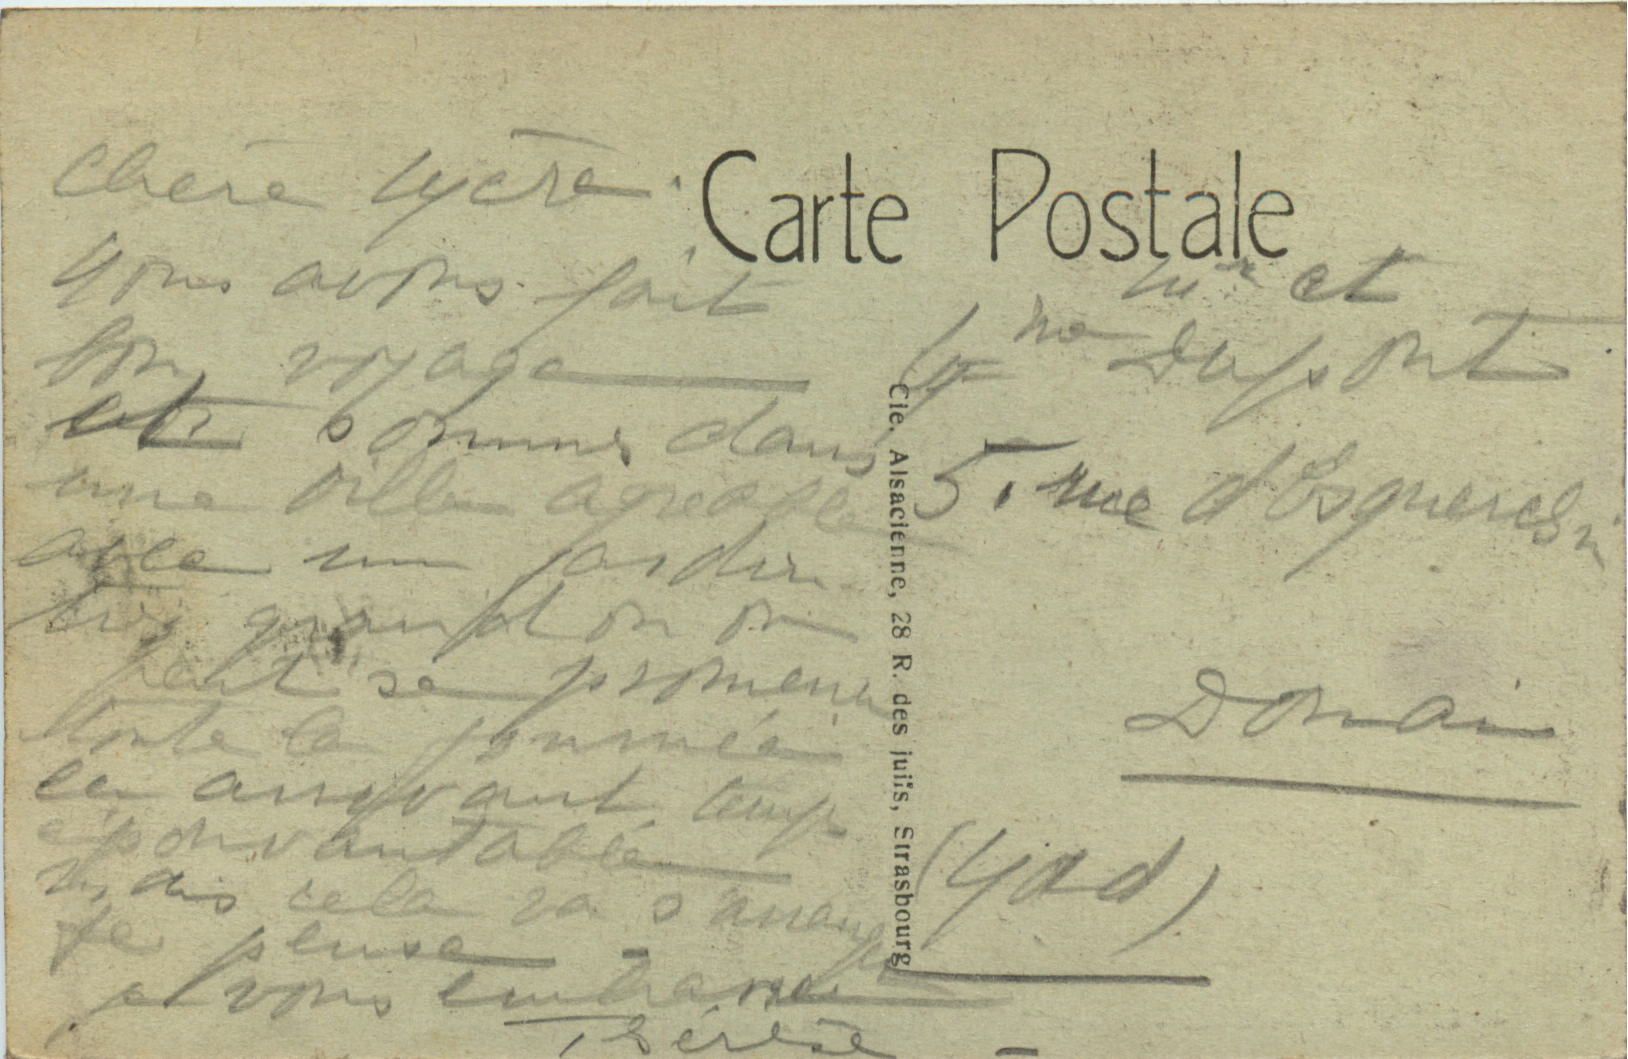 Carte Postale
Chère Mère.
Nous avons fait
bon voyage
et sommes dans
une ville agréable
avec un jardin
très grand on on
peut se promener
toute la journée
en arrivant temps
épouvantable
mais cela va s'arranger
je pense -
je vous embrasse
Thérèse -
Mr et
Mme Dupont
5, rue d'Esquerchin
Douai
(Nord)
Cie. Alsacienne, 28 R. des juifs, Strasbourg